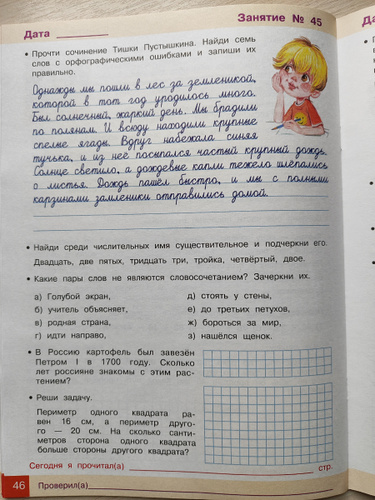 Дата
Занятие № 45
• Прочти сочинение Тишки Пустышкина. Найди семь
слов с орфографическими ошибками и запиши их
правильно.
Однажды мы пошли в лес за земленикой,
которой в тот год уродилось много.
Был солнечный, жаркий день. Мы брадили
по полянам. И всюду находили крупные
спелые ягады. Вдруг набежала синяя
тучька, и из неё посыпался частый крупный дождь.
Солнце светило, а дождевые капли тежело шлёпались
о листья. Дождь пашёл быстро, и мы с полными
карзинами замленики отправились домой.
• Найди среди числительных имя существительное и подчеркни его.
Двадцать, две пятых, тридцать три, тройка, четвёртый, двое.
• Какие пары слов не являются словосочетанием? Зачеркни их.
а) Голубой экран,
д) стоять у стены,
б) учитель объясняет,
е) до третьих петухов,
в) родная страна,
ж) бороться за мир,
г) идти направо,
з) нашёлся щенок.
• В Россию картофель был завезён
Петром I в 1700 году. Сколько
лет россияне знакомы с этим рас-
тением?
• Реши задачу.
Периметр одного квадрата ра-
вен 16 см, а периметр друго-
го — 20 см. На сколько санти-
метров сторона одного квадрата
больше стороны другого квадрата?
Сегодня я прочитал(а)
стр.
46
Проверил(а)